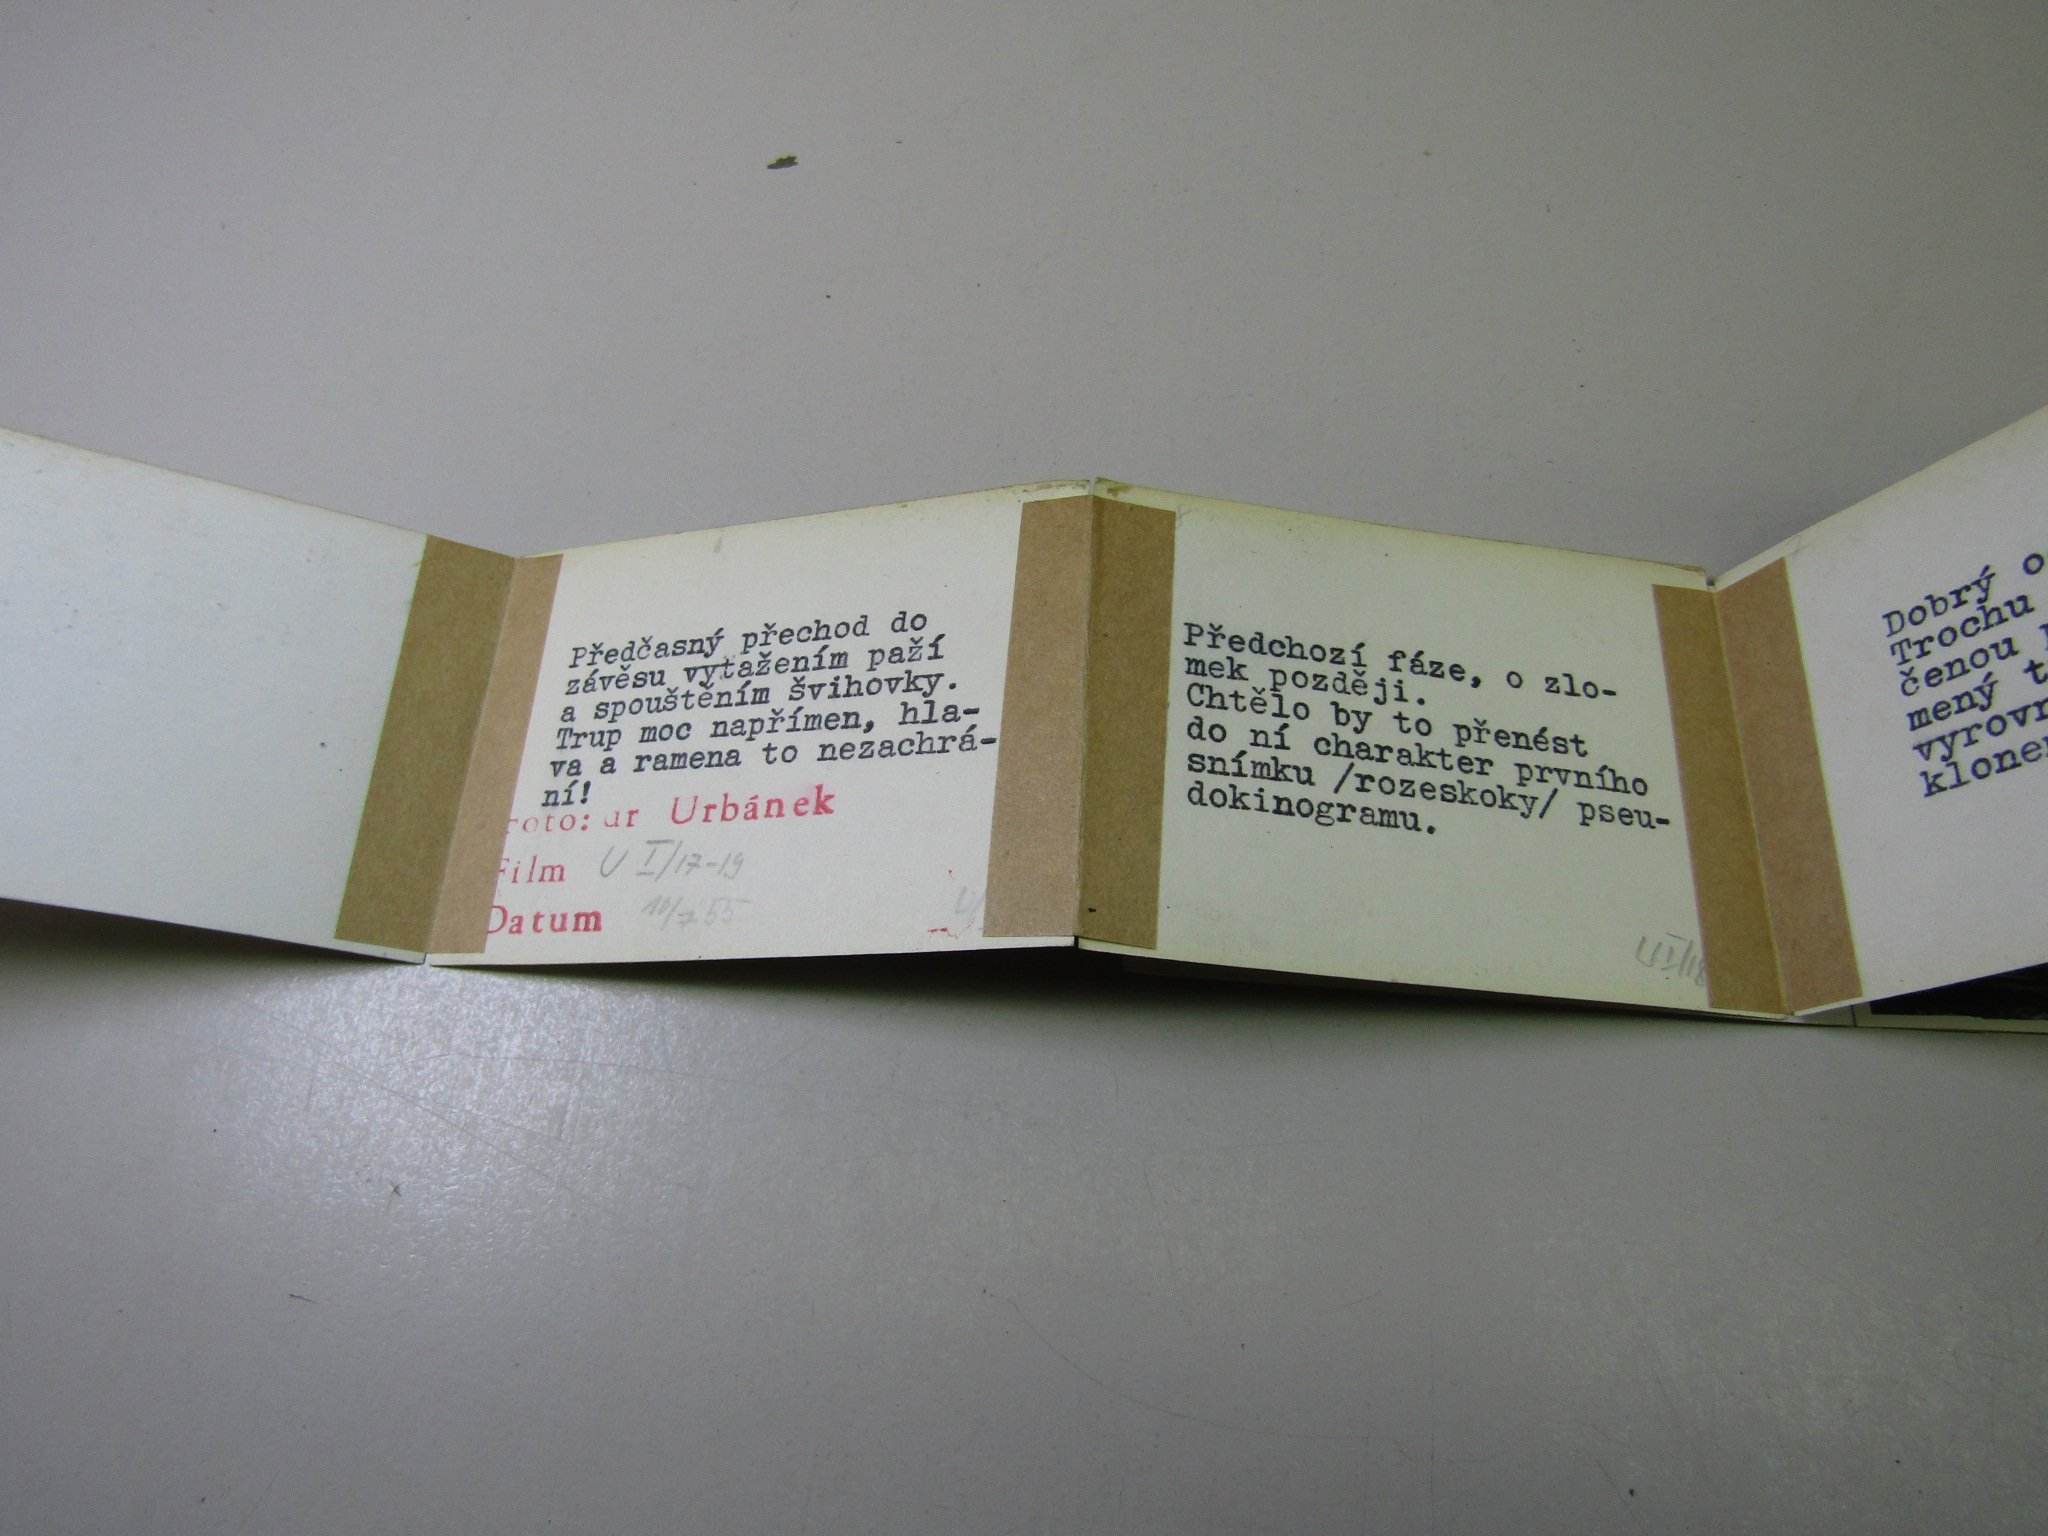 Předčasný přechod do
závěsu vytažením paží
a spouštěním švihovky.
Trup moc napřímen, hla-
va a ramena to nezachrá-
ní!
Foto: dr Urbánek
Film U I/17-19
Datum
Předchozí fáze, o zlo-
mek později.
Chtělo by to přenést
do ní charakter prvního
snímku /rozeskoky/ pseu-
dokinogramu.
U I/18
Dobrý
Trochu
čenou
mený